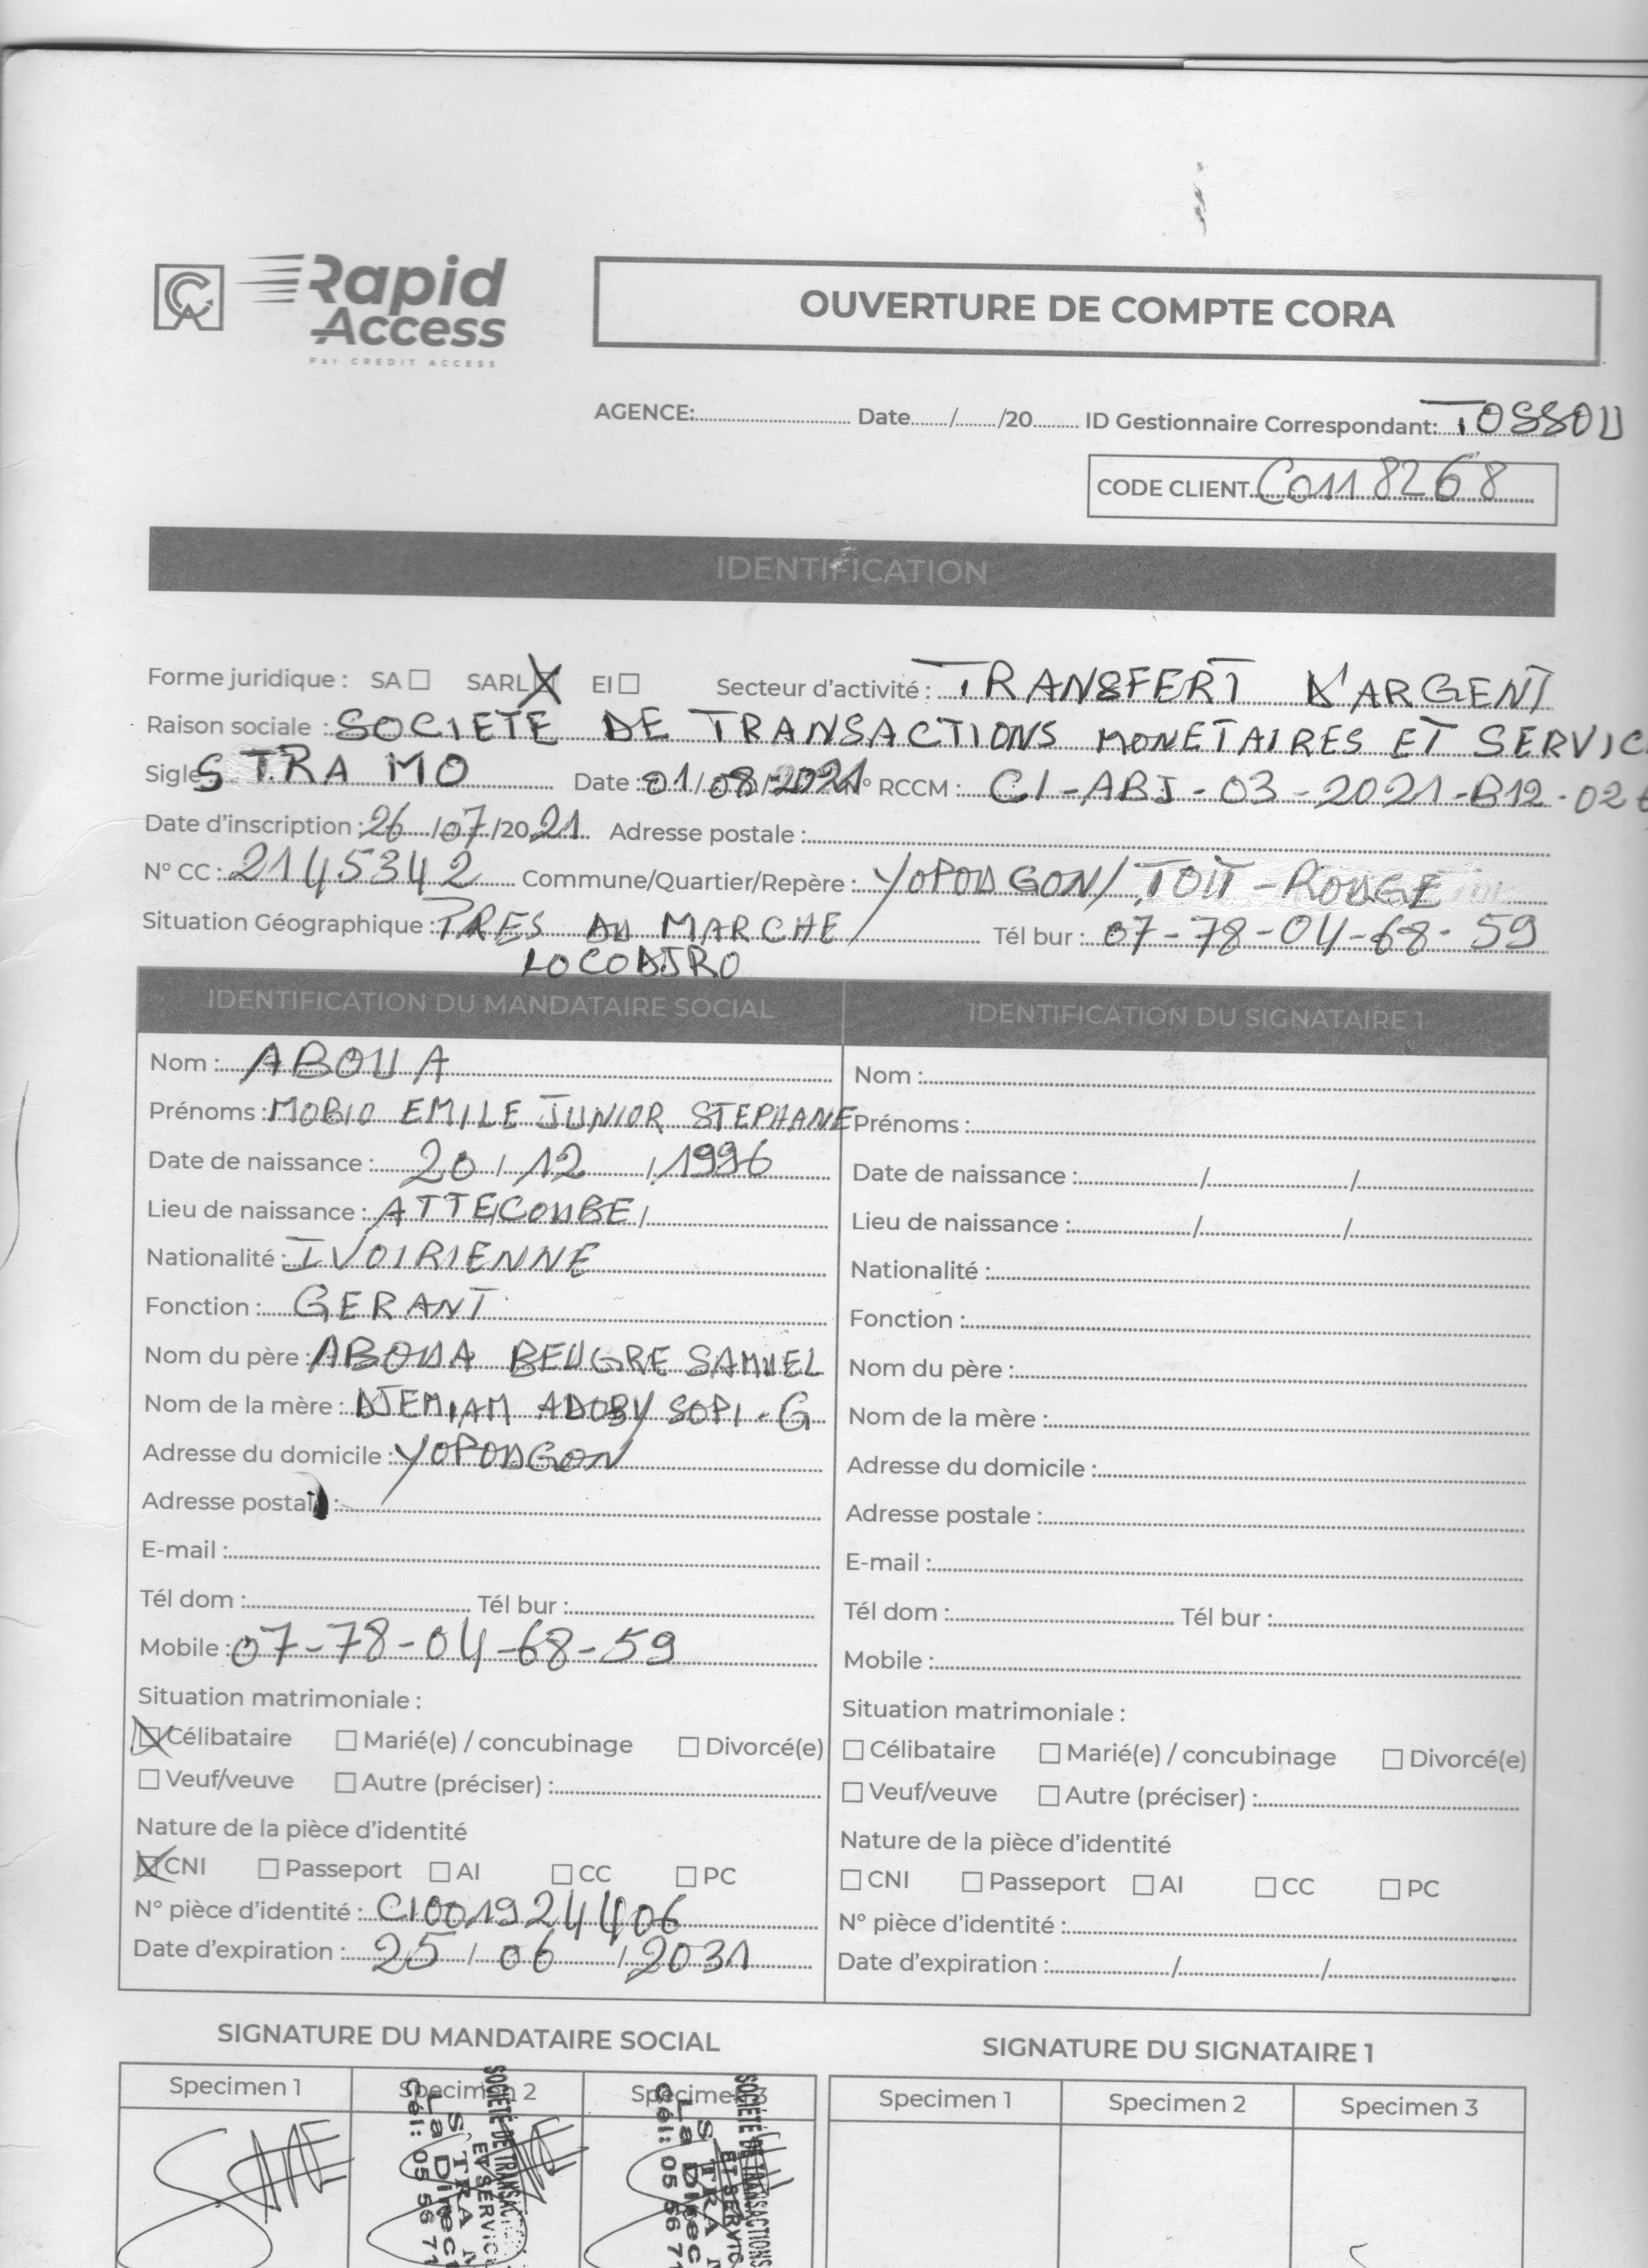 CA Rapid Access
Par CREDIT ACCESS
OUVERTURE DE COMPTE CORA
AGENCE:.......... Date....../....../20...... ID Gestionnaire Correspondant: TOSSOU
CODE CLIENT C0118268
IDENTIFICATION
Forme juridique : SA ☐ SARL ☒ EI ☐ Secteur d'activité : TRANSFERT D'ARGENT
Raison sociale : SOCIETE DE TRANSACTIONS MONETAIRES ET SERVIC
Sigle S TRA MO Date : 01/08/2021 N° RCCM : CI-ABJ-03-2021-B12-02
Date d'inscription : 26/07/2021 Adresse postale :
N° CC : 2145342 Commune/Quartier/Repère : YOPOUGON/ TOIT-ROUGE
Situation Géographique : PRES DU MARCHE Tél bur : 07-78-04-68-59
LOCODJRO
IDENTIFICATION DU MANDATAIRE SOCIAL
Nom : ABOUA
Prénoms : MOBIO EMILE JUNIOR STEPHANE
Date de naissance : 20/12/1996
Lieu de naissance : ATTECOUBE
Nationalité : IVOIRIENNE
Fonction : GERANT
Nom du père : ABOUA BEUGRE SAMUEL
Nom de la mère : DJEMIAM ADOBY SOPI-G
Adresse du domicile : YOPOUGON
Adresse postale :
E-mail :
Tél dom : Tél bur :
Mobile : 07-78-04-68-59
Situation matrimoniale :
☒ Célibataire ☐ Marié(e) / concubinage ☐ Divorcé(e)
☐ Veuf/veuve ☐ Autre (préciser) :
Nature de la pièce d'identité
☒ CNI ☐ Passeport ☐ AI ☐ CC ☐ PC
N° pièce d'identité : CI001924406
Date d'expiration : 25/06/2031
IDENTIFICATION DU SIGNATAIRE 1
Nom :
Prénoms :
Date de naissance : / /
Lieu de naissance : / /
Nationalité :
Fonction :
Nom du père :
Nom de la mère :
Adresse du domicile :
Adresse postale :
E-mail :
Tél dom : Tél bur :
Mobile :
Situation matrimoniale :
☐ Célibataire ☐ Marié(e) / concubinage ☐ Divorcé(e)
☐ Veuf/veuve ☐ Autre (préciser) :
Nature de la pièce d'identité
☐ CNI ☐ Passeport ☐ AI ☐ CC ☐ PC
N° pièce d'identité :
Date d'expiration : / /
SIGNATURE DU MANDATAIRE SOCIAL
Specimen 1 Specimen 2 Specimen 3
SOCIÉTÉ DE TRANSAC
ET SERVIC
S. TRA
La Direc
Cél: 05 56 71
SOCIÉTÉ DE TRANSACTIONS
ET SERVIC
S. TRA
La Direc
Cél: 05 56 71
SIGNATURE DU SIGNATAIRE 1
Specimen 1 Specimen 2 Specimen 3